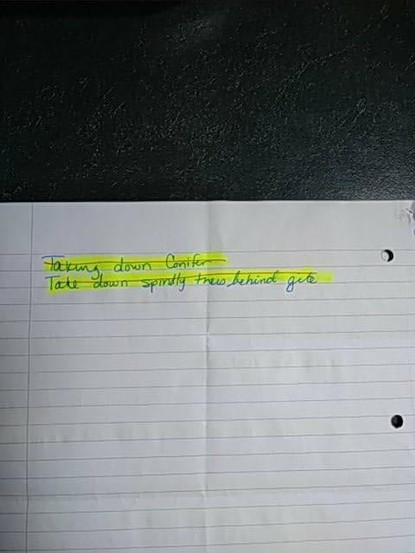 Taking down Conifer
Take down spindly trees behind gite